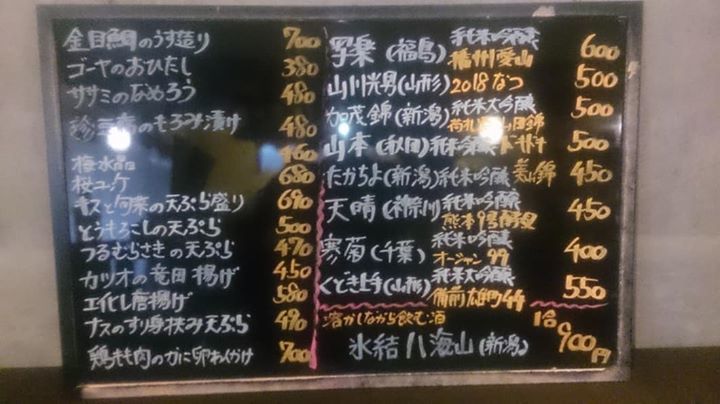 金目鯛のうす造り 700
ゴーヤのおひたし 380
ササミのなめろう 480
豆腐のもろみ漬け 480
梅水晶 460
桜ユッケ 680
キスと旬菜の天ぷら盛り 690
とうもろこしの天ぷら 500
つるむらさきの天ぷら 470
カツオの竜田揚げ 450
エイヒレ唐揚げ 580
ナスのすり身挟み天ぷら 490
鶏もも肉のかに卵あんかけ 700
写楽(福島)純米吟醸 播州愛山 600
山川光男(山形)2018なつ 500
加茂錦(新潟)純米大吟醸 荷札 山田錦 500
山本(秋田)純米吟醸 ドキドキ 500
たかちよ(新潟)純米吟醸 美山錦 450
天晴(神奈川)純米吟醸 熊本9号酵母 450
寒菊(千葉)純米吟醸 オーシャン99 400
くどき上手(山形)純米大吟醸 備前雄町44 550
溶かしながら飲む酒
氷結 八海山(新潟) 1合 900円